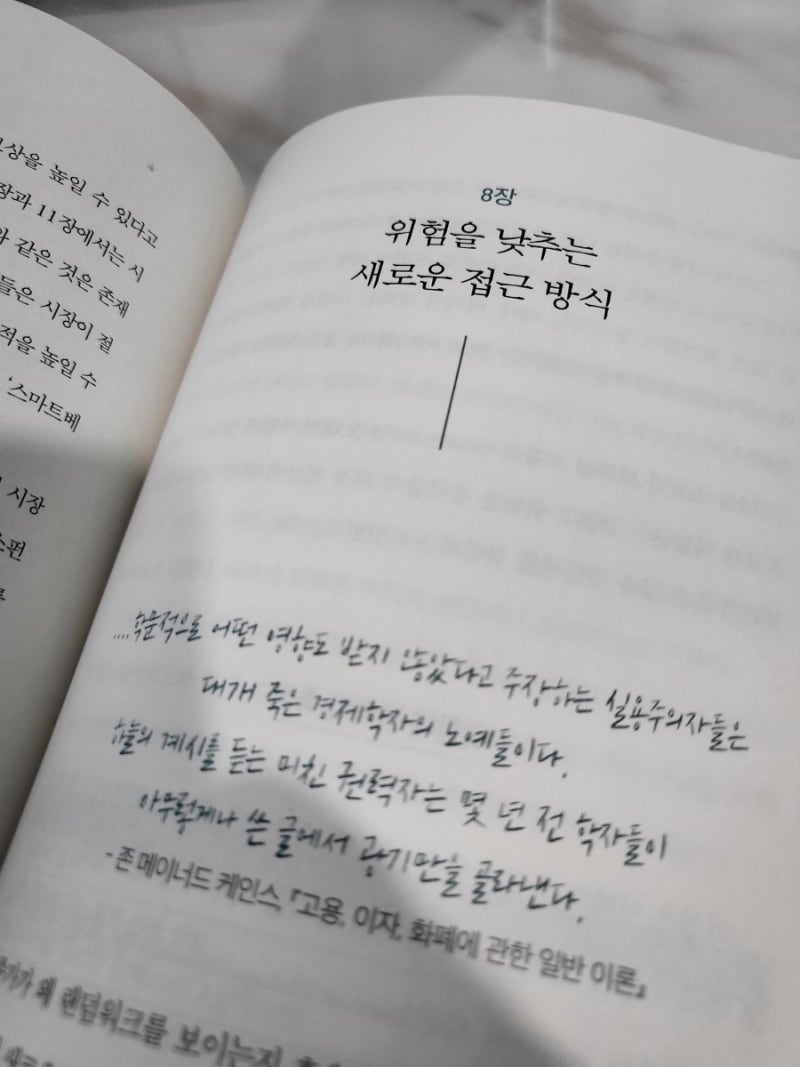 상을 높일 수 있다고
장과 11장에서는 시
같은 것은 존재
들은 시장이 절
적을 높일 수
'스마트베
시장
8장
위험을 낮추는
새로운 접근 방식
....학문적으로 어떤 영향도 받지 않았다고 주장하는 실용주의자들은
대개 죽은 경제학자의 노예들이다.
하늘의 계시를 듣는 미친 권력자는 몇 년 전 학자들이
아무렇게나 쓴 글에서 광기만을 골라낸다.
- 존 메이너드 케인스, 『고용, 이자, 화폐에 관한 일반 이론』
왜 랜덤워크를 보이는지